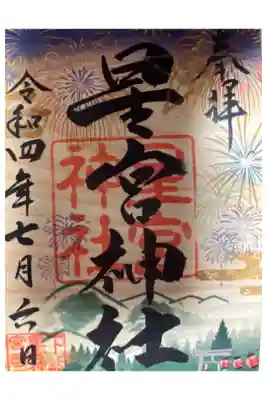 奉拝
星宮神社
星宮
神社
令和四年七月六日